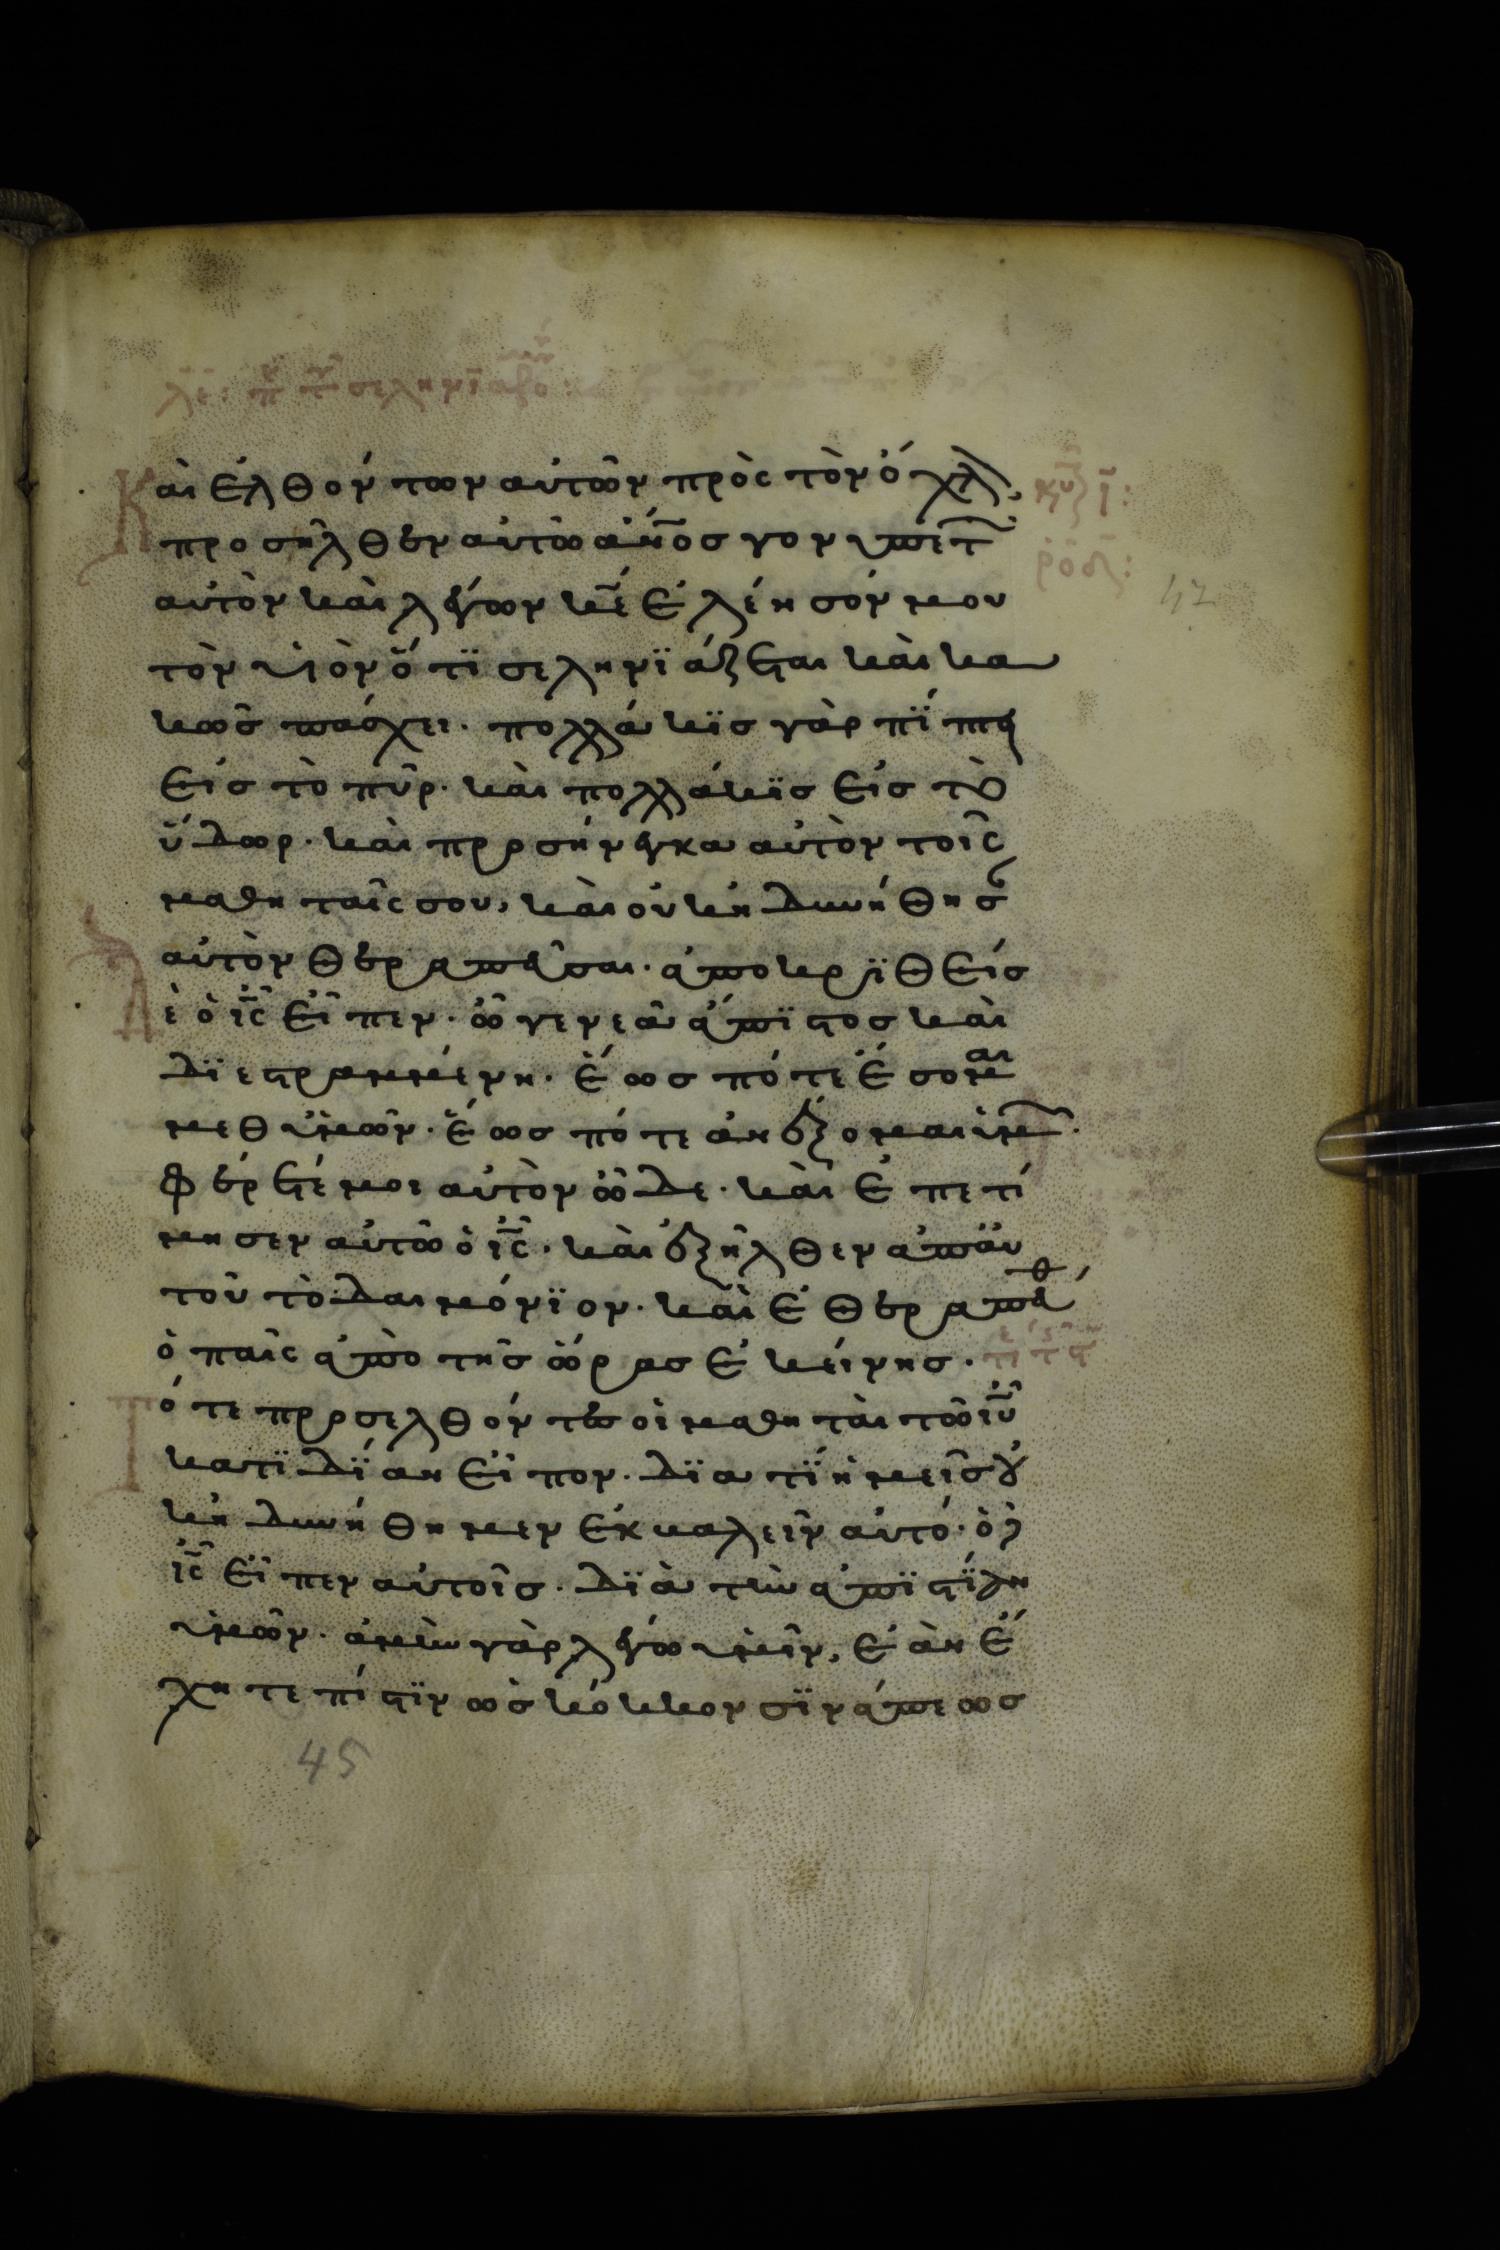 λε: π τ σεληνιαζο:
Καὶ ἐλθόντων αὐτῶν πρὸς τὸν ὄχλ,
προσῆλθεν αὐτῶ ἄνος γονυπετ
αὐτὸν καὶ λέγων κέ ἐλέησόν μου
τὸν υἱὸν ὅτϊ σεληνϊάζεται καὶ κα
κῶς πάσχει. πολλάκϊς γὰρ πΐπτει
εἰς τὸ πῦρ. καὶ πολλάκϊς εἰς τὸ
ὕδωρ. καὶ προσήνεγκα αὐτὸν τοῖς
μαθηταῖς σου, καὶ οὐκ ἠδυνήθησ
αὐτὸν θεραπεῦσαι. ἀποκρϊθεὶς
Δὲ ὁ ις εἶπεν. ὦ γενεὰ ἄπϊστος καὶ
δϊεστραμμένη. ἕως πότε ἔσομαι
μεθ ὑμῶν. ἕως πότε ἀνέξομαι ὑμ.
φέρετέ μοι αὐτὸν ὧδε. καὶ ἐπετί
μησεν αὐτῶ ὁ ις. καὶ ἐξῆλθεν ἀπ αυ
τοῦ τὸ δαιμόνϊον. καὶ ἐθεραπεύθ
ὁ παῖς ἀπὸ τῆς ὥρας ἐκείνης.
Τότε προσελθόντες οἱ μαθηταὶ τῶ ιυ
κατϊδΐαν εἶπον. δϊατΐ ἡμεῖς οὐ
κ ἠδυνήθημεν ἐκβαλεῖν αὐτό. ὁ δ
ις εἶπεν αὐτοῖς. δϊὰ τὴν ἀπϊστΐαν
ὑμῶν. ἀμὴν γὰρ λέγω ὑμῖν, ἐὰν ἔ
χητε πίστϊν ὡς κόκκον σϊνάπεως
45